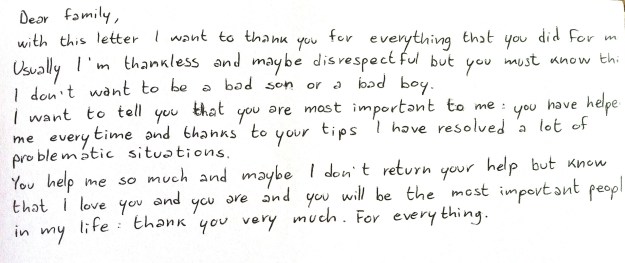 Dear family,
with this letter I want to thank you for everything that you did for m
Usually I'm thankless and maybe disrespectful but you must know thi
I don't want to be a bad son or a bad boy.
I want to tell you that you are most important to me : you have helpe
me everytime and thanks to your tips I have resolved a lot of
problematic situations.
You help me so much and maybe I don't return your help but know
that I love you and you are and you will be the most important peopl
in my life : thank you very much. For everything.